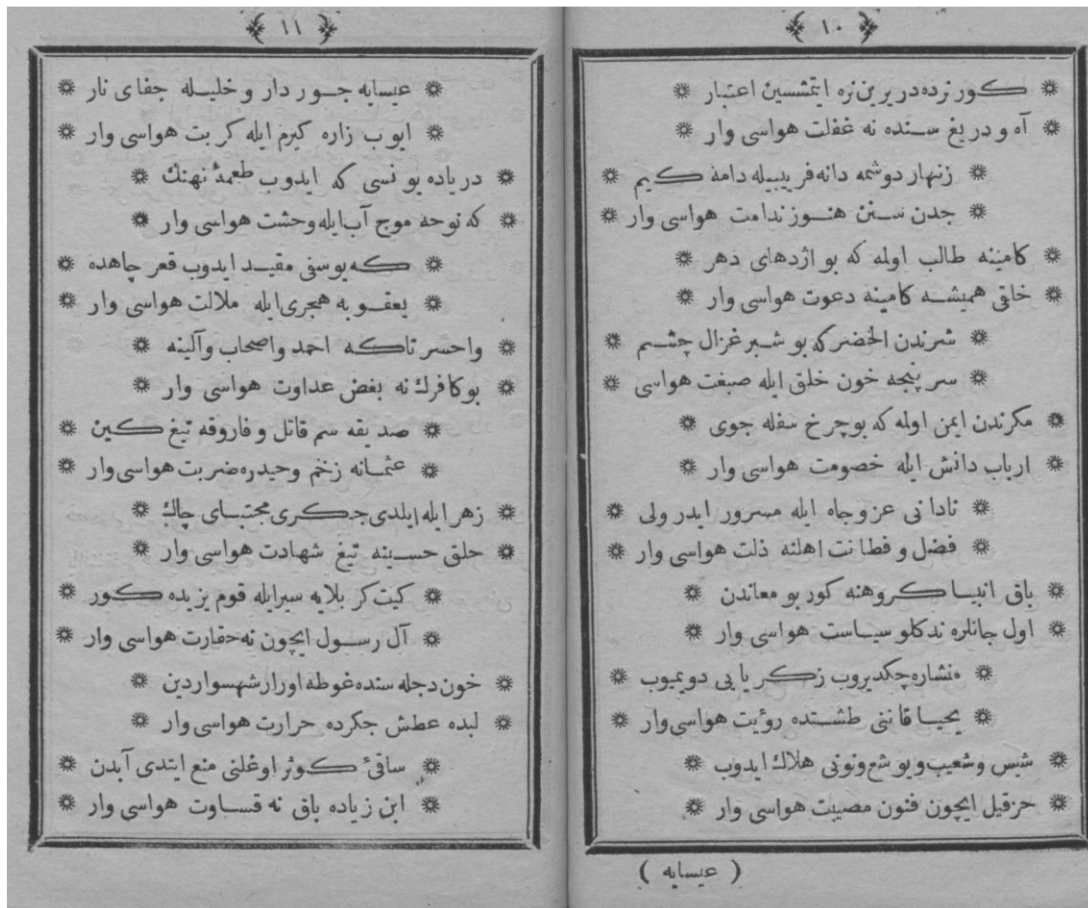 ١٠
كورنرده در برين نزه ايتمشسين اعتبار
آه و دريغ سنده نه غفلت هواسى وار
زنهار دوشمه دانه فريبيله دامه كيم
جدن سنن هنوز ندامت هواسى وار
كامينه طالب اوله كه بو اژدهاى دهر
خلقى هميشه كامينه دعوت هواسى وار
شرندن الحضر كه بو شير غزال چشم
سر پنجه خون خلق ايله صبغت هواسى
مكرندن ايمن اوله كه بو چرخ سفله جوى
ارباب دانش ايله خصومت هواسى وار
نادانى عز و جاه ايله مسرور ايدر ولى
فضل و فطانت اهلنه ذلت هواسى وار
باق انبيا كروهنه كور بو معاندن
اول جانلره ندكلو سياست هواسى وار
منشاره چكديروب زكريايى دويميوب
يحيا قاننى طشتده رؤيت هواسى وار
شيس و شعيب و يوشع و نونى هلاك ايدوب
حزقيل ايچون فنون مصيبت هواسى وار
( عيسايه )
١١
عيسايه جور دار و خليله جفاى نار
ايوب زاره كرم ايله كربت هواسى وار
درياده يونسى كه ايدوب طعمهٔ نهنك
كه نوحه موج آب ايله وحشت هواسى وار
كه يوسفى مقيد ايدوب قعر چاهده
يعقوبه هجرى ايله ملالت هواسى وار
واحسرتا كه احمد واصحاب وآلينه
بو كافرك نه بغض عداوت هواسى وار
صديقه سم قاتل و فاروقه تيغ كين
عثمانه زخم وحيدره ضربت هواسى وار
زهر ايله ايلدى جكرى مجتباى چاك
حلق حسينه تيغ شهادت هواسى وار
كيت كربلايه سير ايله قوم يزيده كور
آل رسول ايچون نه حقارت هواسى وار
خون دجله سنده غوطه اورار شهسوار دين
لبده عطش جكرده حرارت هواسى وار
ساقئ كوثر اوغلنى منع ايتدى آبدن
ابن زياده باق نه قساوت هواسى وار